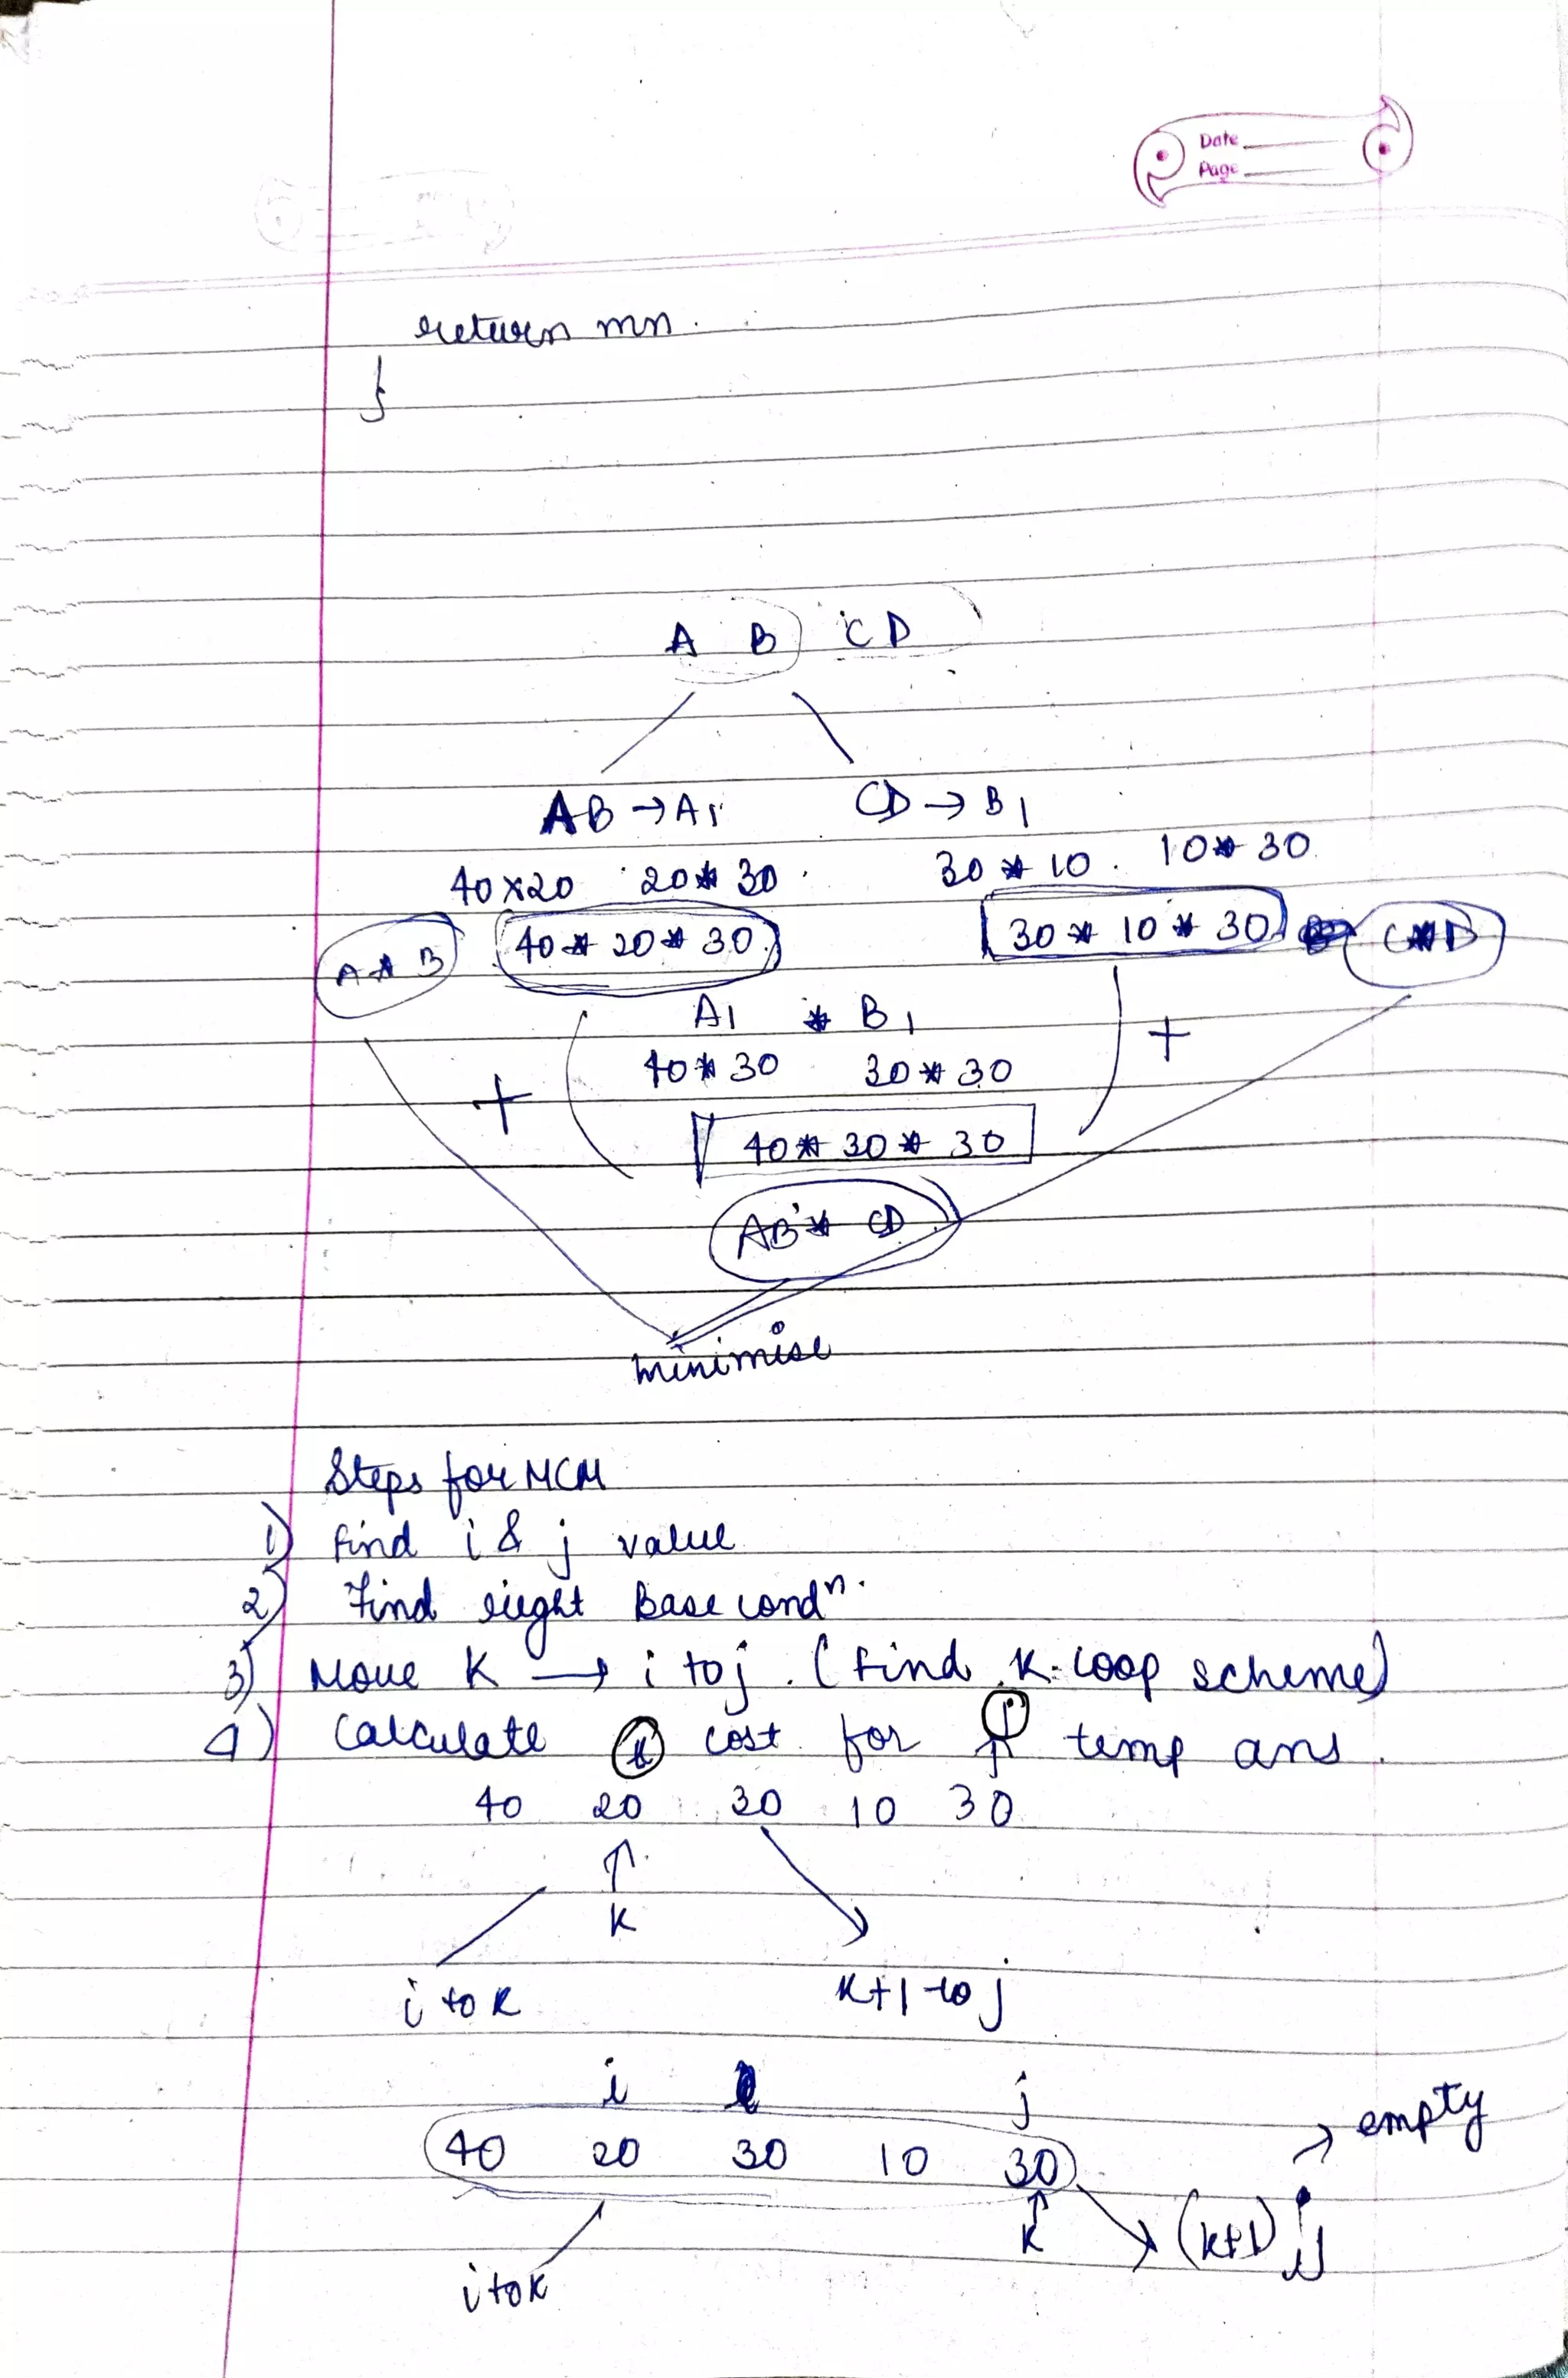 Date
Page
return mn.
}
A B C D
AB → A1 CD → B1
40×20 20*30 30*10. 10*30
A*B 40*20*30 30*10*30 C*D
A1 * B1
40*30 30*30
+ +
40*30*30
AB*CD
minimise
Steps for MCM
1) Find i & j value
2) Find right Base condn.
3) Move K → i to j. (Find k-loop scheme)
4) Calculate cost for temp ans.
40 20 30 10 30
↑
K
i to k k+1 to j
i j
40 20 30 10 30 → empty
↑
K (k+1) j
i to k